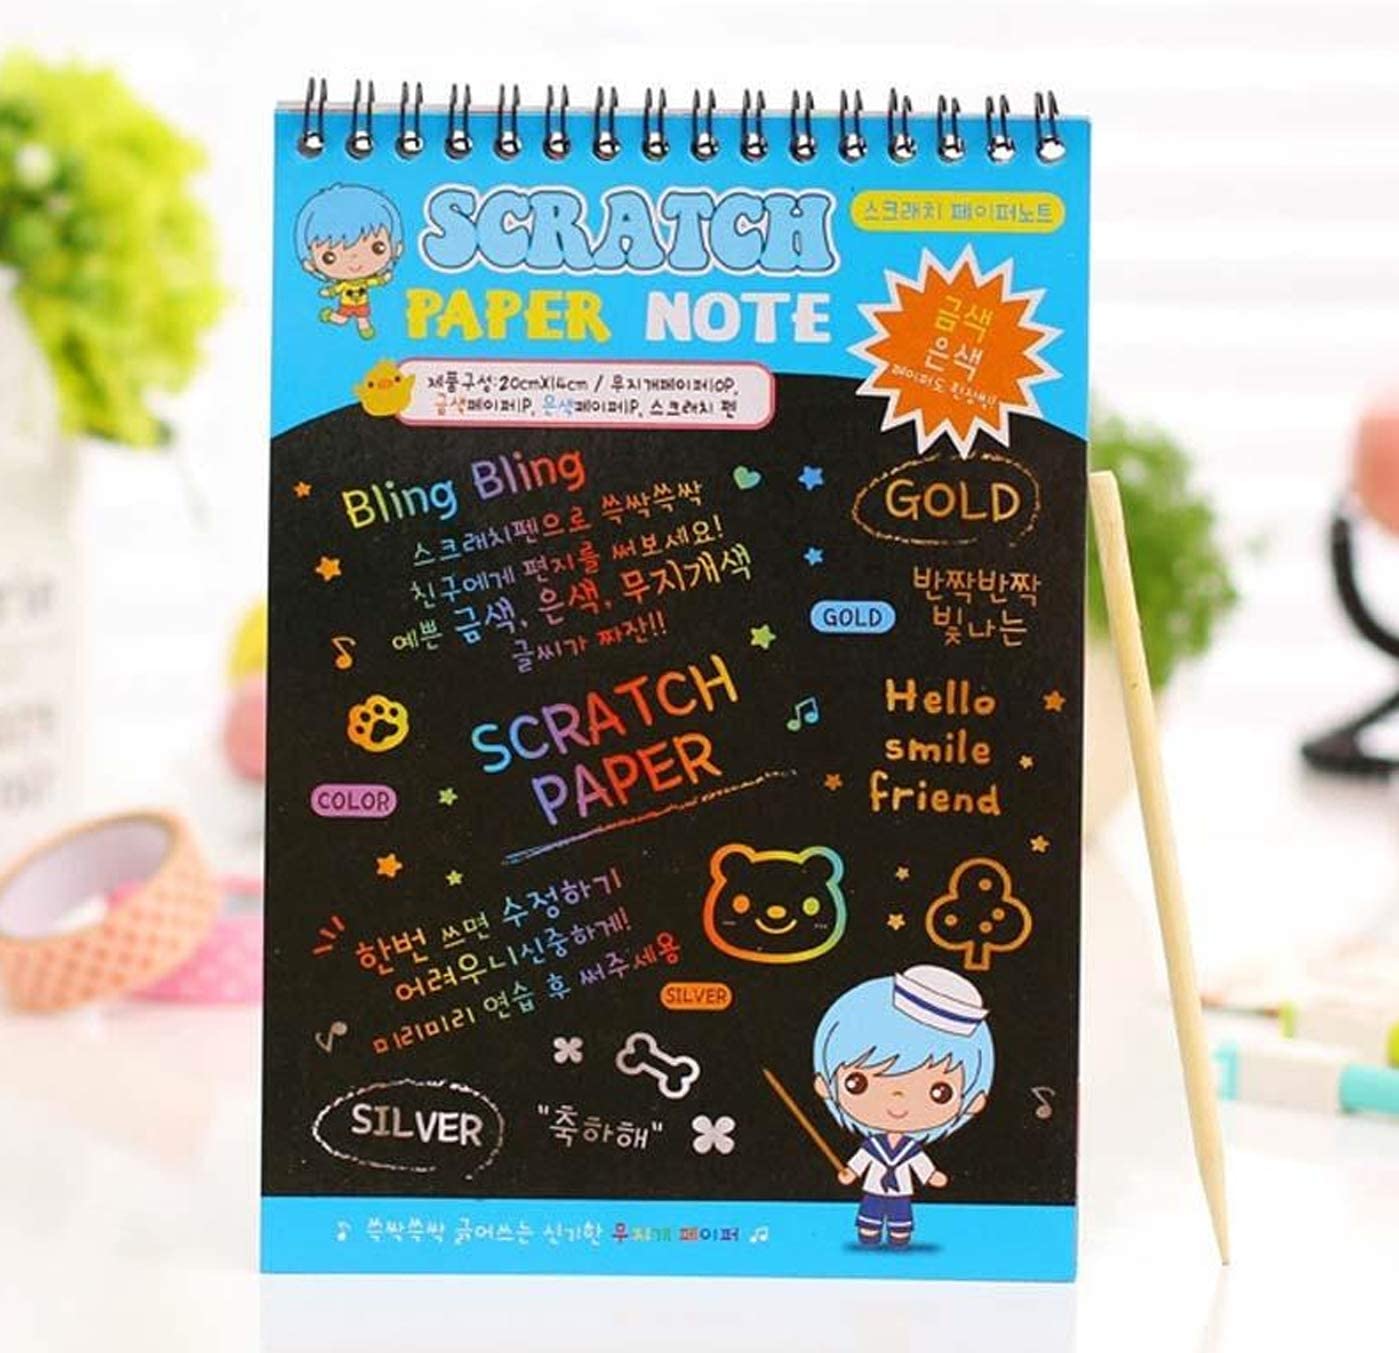 SCRATCH
스크래치 페이퍼노트
PAPER NOTE
금색
은색
페이퍼도 한장씩!!
제품구성:20cmX14cm / 무지개페이퍼10P,
금색페이퍼1P, 은색페이퍼1P, 스크래치 펜
Bling Bling
스크래치펜으로 쓱싹쓱싹
친구에게 편지를 써보세요!
예쁜 금색, 은색, 무지개색
글씨가 짜잔!!
GOLD
반짝반짝
빛나는
GOLD
SCRATCH
PAPER
Hello
smile
friend
COLOR
한번 쓰면 수정하기
어려우니신중하게!
미리미리 연습 후 써주세용
SILVER
SILVER
"축하해"
쓱싹쓱싹 긁어쓰는 신기한 무지개 페이퍼